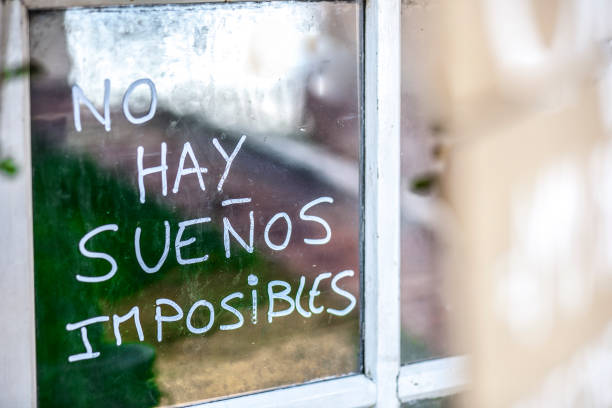 NO
HAY
SUEÑOS
IMPOSiBLES